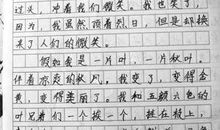 过头，冲着我们微笑。我也笑了，
因为，我虽然顶着烈日，但是却换
来了人们的微笑。
假如我是一片叶，一片秋叶。
伴着凉爽的秋风，我变了，变得金
黄，变得美丽了。我和五颜六色的
叶兄弟们一个挨一个，挂在枝上，